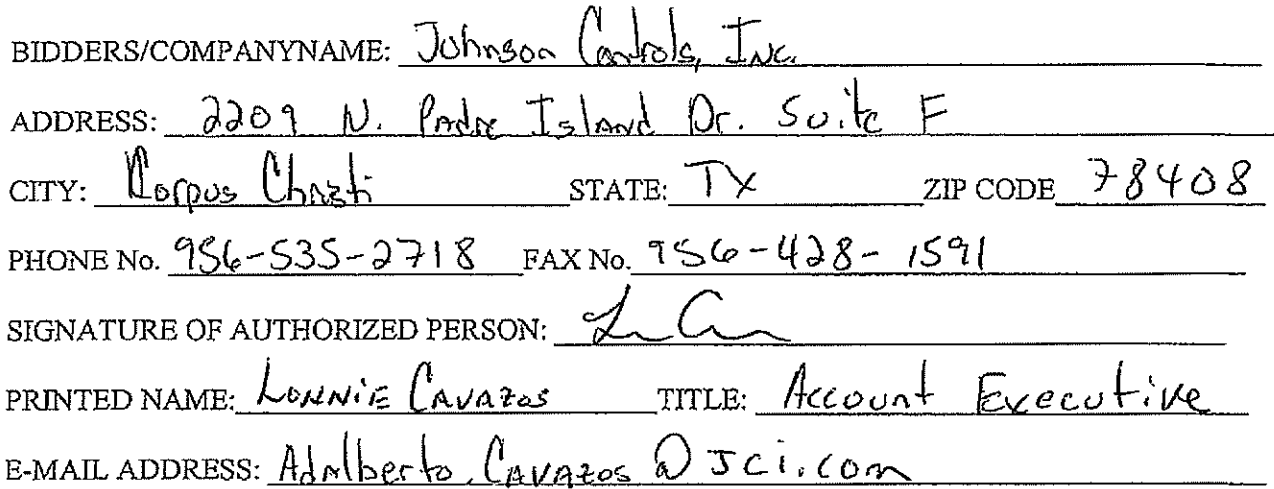 BIDDERS/COMPANYNAME: Johnson Controls, Inc.
ADDRESS: 2209 N. Padre Island Dr. Suite F
CITY: Corpus Christi STATE: TX ZIP CODE 78408
PHONE No. 956-535-2718 FAX No. 956-428-1591
SIGNATURE OF AUTHORIZED PERSON:
PRINTED NAME: Lonnie Cavazos TITLE: Account Executive
E-MAIL ADDRESS: Adalberto.Cavazos@jci.com